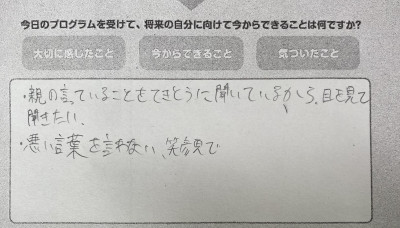 今日のプログラムを受けて、将来の自分に向けて今からできることは何ですか?
大切に感じたこと
今からできること
気づいたこと
・親の言っていることをてきとうに聞いているから、目を見て
聞きたい。
・悪い言葉を言わない、笑顔で